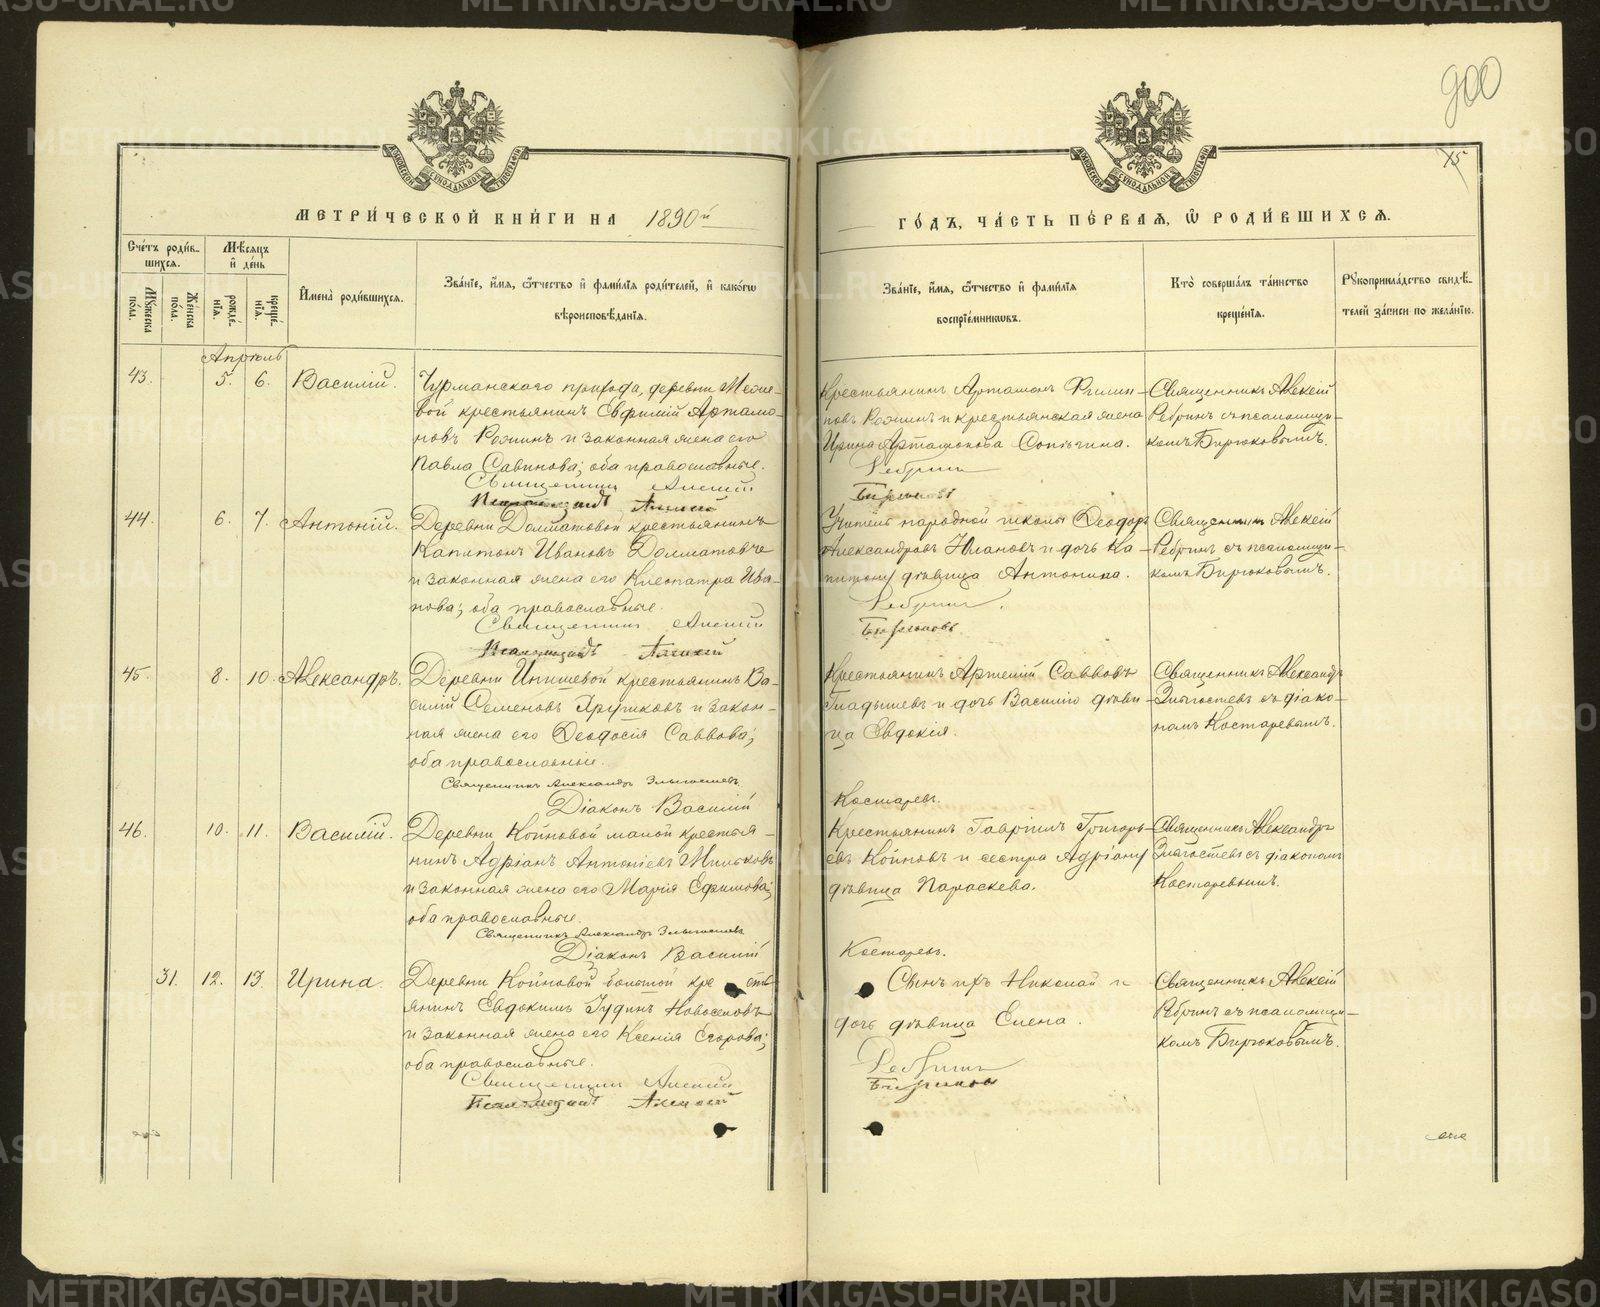 METRIKI.GASO-URAL.RU
900
75
МОСКОВСКОЙ СѴНОДАЛЬНОЙ ТИПОГРАФІИ
МОСКОВСКОЙ СѴНОДАЛЬНОЙ ТИПОГРАФІИ
МЕТРИ́ЧЕСКОЙ КНИ́ГИ НА 1890й
ГО́ДЪ, ЧА́СТЬ ПЕ́РВАЯ, Ѿ РОДИ́ВШИХСЯ.
Сче́тъ роди́в-
шихся.
Мѣсяцъ
и де́нь
Му́жеска по́ла.
Же́нска по́ла.
рожде́нія.
креще́нія.
И҆мена̀ роди́вшихся.
Зва́ніе, и҆́мя, ѻ҆́тчество и҆ фами́лія роди́телей, и҆ како́гѡ
вѣроисповѣ́данія.
Зва́ніе, и҆́мя, ѻ҆́тчество и҆ фами́лія
воспріе́мниковъ.
Кто̀ соверша́лъ та́инство
креще́нія.
Рꙋкоприкла́дство свидѣ́-
телей за́писи по жела́нію.
Апрѣль
43. 5. 6. Василій.
Чурманскаго прихода, деревни
вой крестьянинъ Евфимій Артамо-
новъ Рожинъ и законная жена его
Павла Савинова; оба православные.
Священникъ Алексій
Псаломщикъ Алексей
Крестьянинъ Артамонъ Филип-
повъ Рожинъ и крестьянская жена
Ирина Артамонова
Ребринъ
Бирюковъ
Священникъ Алексій
Ребринъ съ псаломщи-
комъ Бирюковымъ.
44. 6. 7. Антоній.
Деревни Долматовой крестьянинъ
Капитонъ Ивановъ Долматовъ
и законная жена его Клеопатра Ива-
нова; оба православные.
Священникъ Алексій
Псаломщикъ Алексей
Учитель народной школы Ѳеодоръ
Александровъ и дочь Ка-
питону дѣвица Антонина.
Ребринъ.
Бирюковъ
Священникъ Алексій
Ребринъ съ псаломщи-
комъ Бирюковымъ.
45. 8. 10. Александръ.
Деревни крестьянинъ Ва-
силій Семеновъ и закон-
ная жена его Ѳеодосія Саввова;
оба православные.
Священникъ Александръ Злыгостевъ.
Діаконъ Василій
Крестьянинъ Артемій Саввовъ
Гладышевъ и дочь Василію дѣви-
ца Евдокія.
Костаревъ.
Священникъ Александръ
Злыгостевъ съ діако-
номъ Костаревымъ.
46. 10. 11. Василій.
Деревни Койновой малой крестья-
нинъ Адріанъ Антоніевъ
и законная жена его Марія Ефимова;
оба православные.
Священникъ Александръ Злыгостевъ
Діаконъ Василій
Крестьянинъ Гавріилъ Григорь-
евъ Койновъ и сестра Адріану
дѣвица Параскева.
Костаревъ.
Священникъ Александръ
Злыгостевъ съ діакономъ
Костаревымъ.
31. 12. 13. Ирина.
Деревни Койновой большой кресть-
янинъ Евдокимъ Іудинъ Новоселовъ
и законная жена его Ксенія Егорова;
оба православные.
Священникъ Алексій
Псаломщикъ Алексей
Сынъ ихъ Николай и
дочь дѣвица Елена.
Ребринъ
Бирюковъ
Священникъ Алексій
Ребринъ съ псаломщи-
комъ Бирюковымъ.